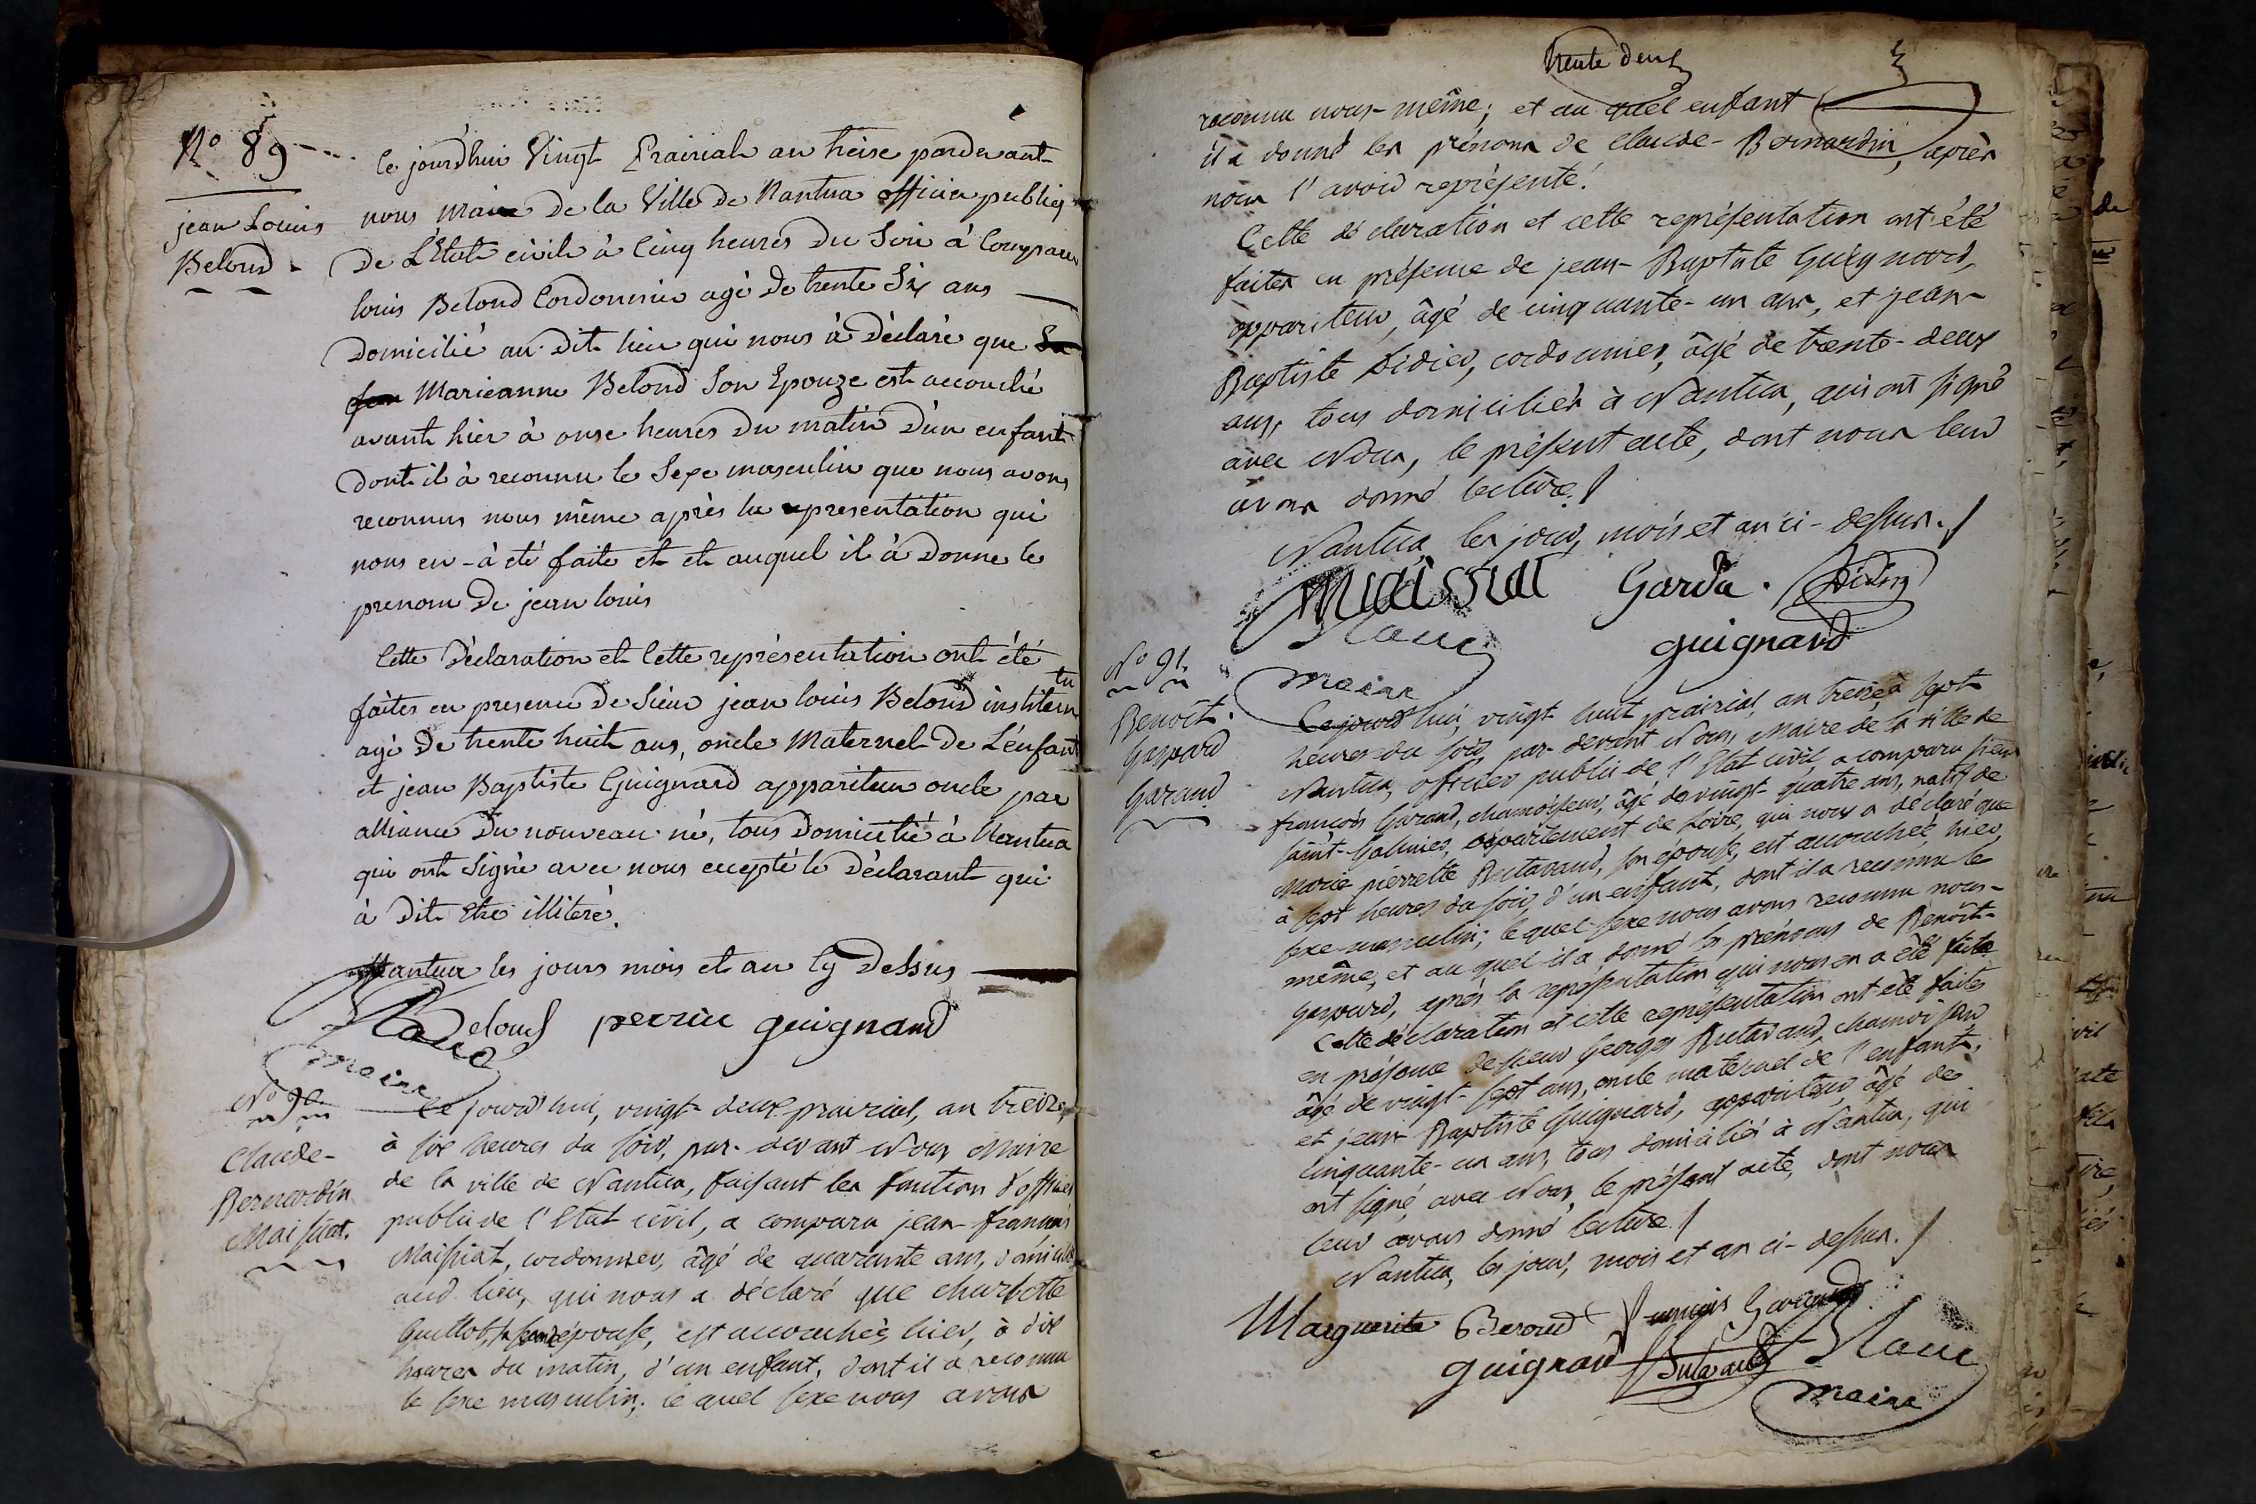 N° 89
jean Louis
Belond
Ce jourd'hui Vingt Prairial an treise pardevant
nous Maire de la Ville de Nantua officier publiq
de L'État civil à Cinq heures du Soir à Comparu
louis Belond Cordonnier agé de trente Six ans
Domicilié au dit lieu qui nous à Déclaré que
Marieanne Belond Son Epouze est accouché
avant hier à onse heures du matin d'un enfant
dont il à reconnu le Sexe masculin que nous avons
reconnus nous même après la representation qui
nous en à été faite et et auquel il à Donne le
prenom de jean louis
Cette Déclaration et Cette représentation ont été
faites en presence de Sieur jean louis Belond instituteur
agé de trente huit ans, oncle Maternel de L'enfant
et jean Baptiste Guignard appariteur oncle par
alliance du nouveau né, tous Domicilié à Nantua
qui ont Signé avec nous excepté le Déclarant qui
à Dit Etre illiteré.
Nantua les jours mois et an Cy Dessus
Belond perrin guignard
maire
N° 90
Claude-
Bernardin
Maissiat.
Ce jourd'hui, vingt-deux prairial, an treize,
à six heures du soir, par-devant Nous Maire
de la ville de Nantua, faisant les fonction d'officier
public de l'Etat civil, a comparu jean-françois
Maissiat, cordonnier, âgé de quarante ans, domicilié
aud. lieu, qui nous a déclaré que charlotte
Guillot, épouse, est accouchée hier, à dix
heures du matin, d'un enfant, dont il a reconnu
le sexe masculin; le quel sexe nous avons
trente deux
reconnu nous-même; et au quel enfant
il a donné les prénoms de Claude-Bernardin, après
nous l'avoir représenté.
Cette déclaration et cette représentation ont été
faites en présence de jean-Baptiste Guignard,
appariteur, âgé de cinquante-un ans, et jean-
Baptiste Didier, cordonnier, âgé de trente-deux
ans, tous domiciliés à Nantua, qui ont signé
avec Nous, le présent acte, dont nous leur
avons donné lecture./
Nantua, les jour, mois et an ci-dessus./
Maissiat Garda. Didier
guignard
maire
N° 91
Benoît-
Gaspard
Garand
Ce jourd'hui, vingt huit prairial, an treize, à sept
heures du soir, par-devant Nous, Maire de la ville de
Nantua, officier public de l'Etat civil, a comparu sieur
françois Garand, chamoiseur, âgé de vingt-quatre ans, natif de
saint-Galmier, département de Loire, qui nous a déclaré que
Marie pierrette Butavand, son épouse, est accouchée, hier,
à sept heures du soir, d'un enfant, dont il a reconnu le
sexe masculin; lequel sexe nous avons reconnu nous-
même; et au quel il a donné les prénoms de Benoît-
Gaspard, après la représentation qui nous en a été faite.
Cette déclaration et cette représentation ont été faites
en présence de sieur Georges Butavand, chamoiseur
âgé de vingt-sept ans, oncle maternel de l'enfant,
et jean-Baptiste Guignard, appariteur, âgé de
cinquante-un ans, tous domiciliés à Nantua, qui
ont signé, avec Nous, le présent acte, dont nous
leur avons donné lecture./
Nantua, les jour, mois et an ci-dessus./
Marguerite françois Garand
guignard Butavand
maire